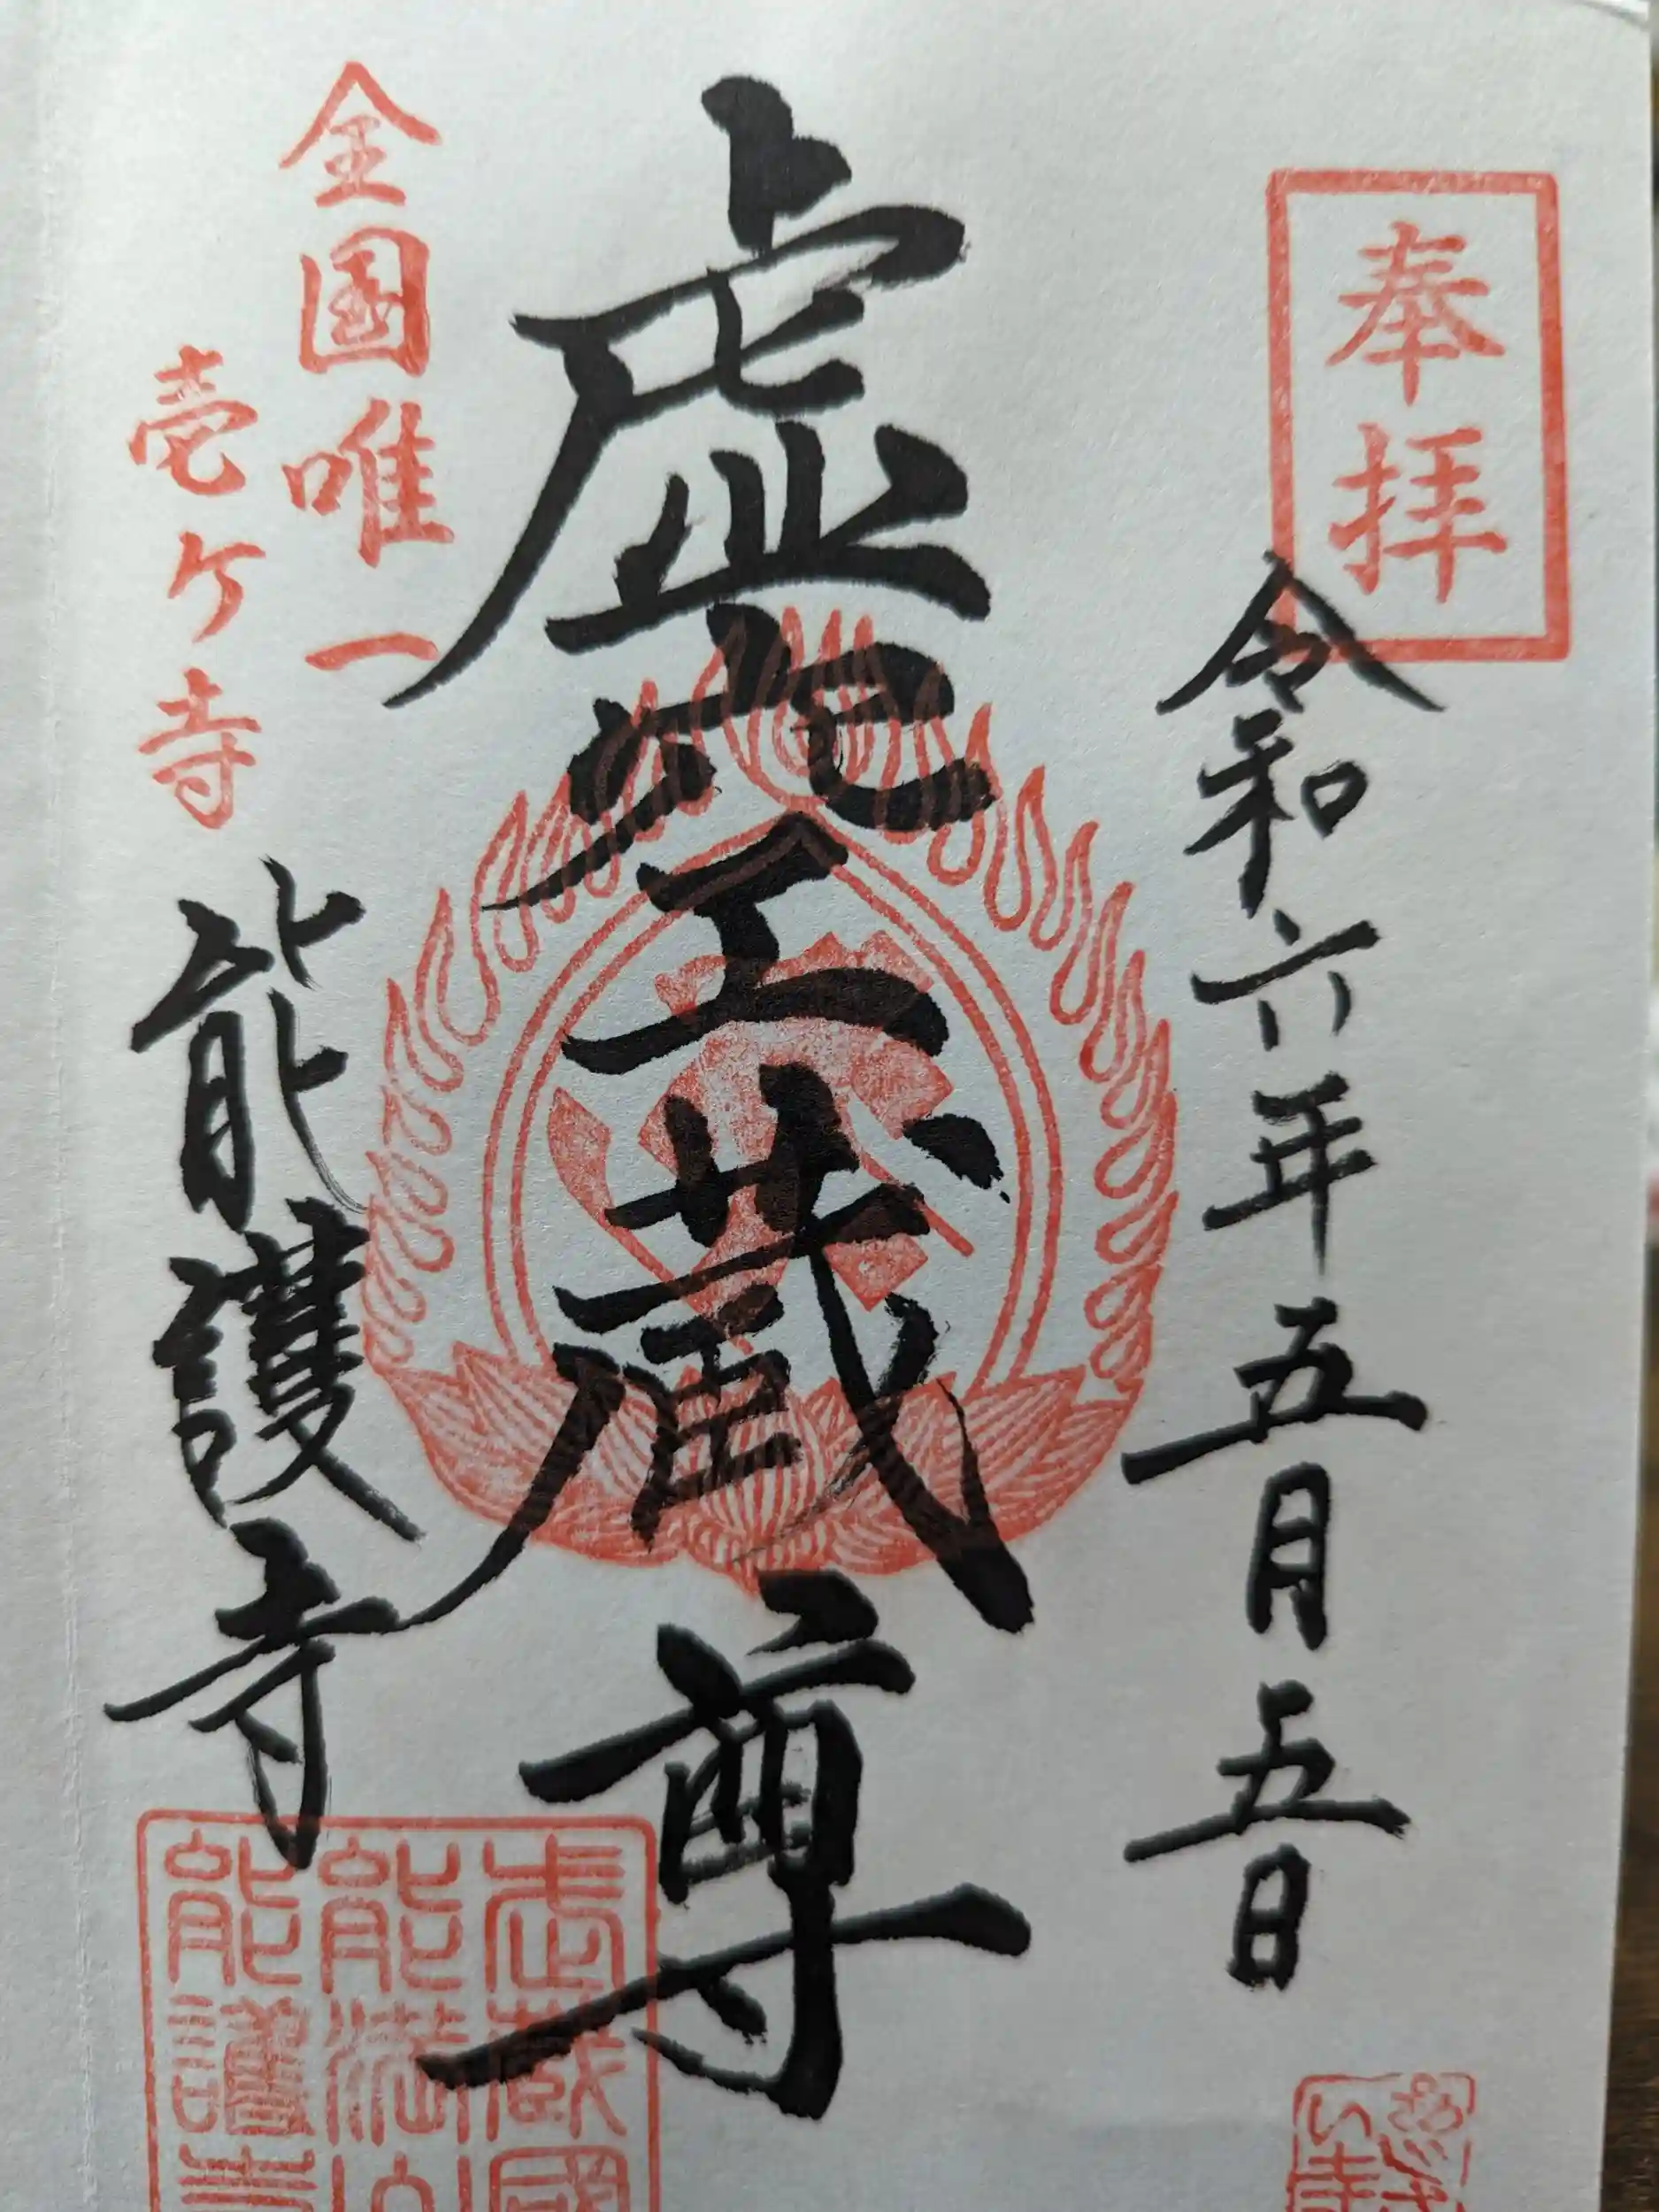 奉拝
令和六年五月五日
虚空蔵尊
全国唯一
壱ケ寺
能護寺
武蔵國
能満山
能護寺